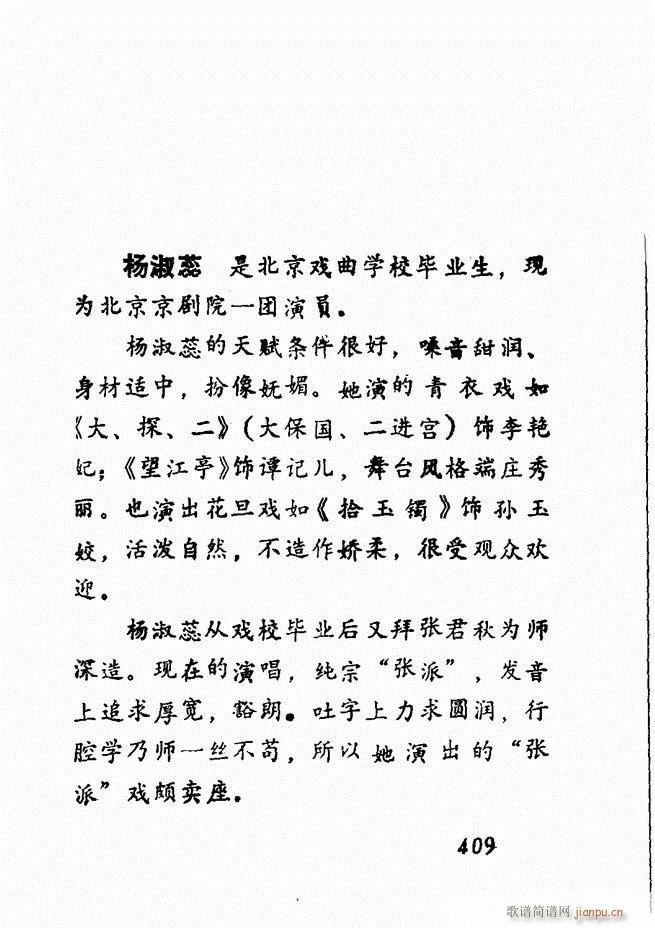 杨淑蕊 是北京戏曲学校毕业生，现
为北京京剧院一团演员。
杨淑蕊的天赋条件很好，嗓音甜润、
身材适中，扮像妩媚。她演的青衣戏如
《大、探、二》（大保国、二进宫）饰李艳
妃；《望江亭》饰谭记儿，舞台风格端庄秀
丽。也演出花旦戏如《拾玉镯》饰孙玉
姣，活泼自然，不造作娇柔，很受观众欢
迎。
杨淑蕊从戏校毕业后又拜张君秋为师
深造。现在的演唱，纯宗“张派”，发音
上追求厚宽，豁朗。吐字上力求圆润，行
腔学乃师一丝不苟，所以她演出的“张
派”戏颇卖座。
409
歌谱简谱网 jianpu.cn